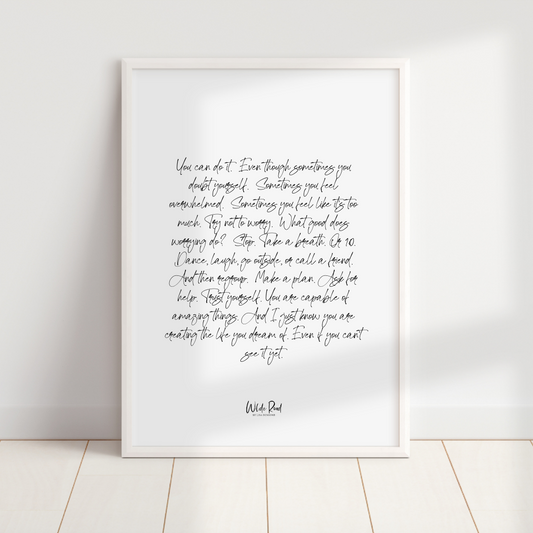 You can do it. Even though sometimes you
doubt yourself. Sometimes you feel
overwhelmed. Sometimes you feel like its too
much. Try not to worry. What good does
worrying do? Stop. Take a breath. Or 10.
Dance, laugh, go outside, or call a friend.
And then regroup. Make a plan. Ask for
help. Trust yourself. You are capable of
amazing things. And I just know you are
creating the life you dream of. Even if you can't
see it yet.
Wilde Road